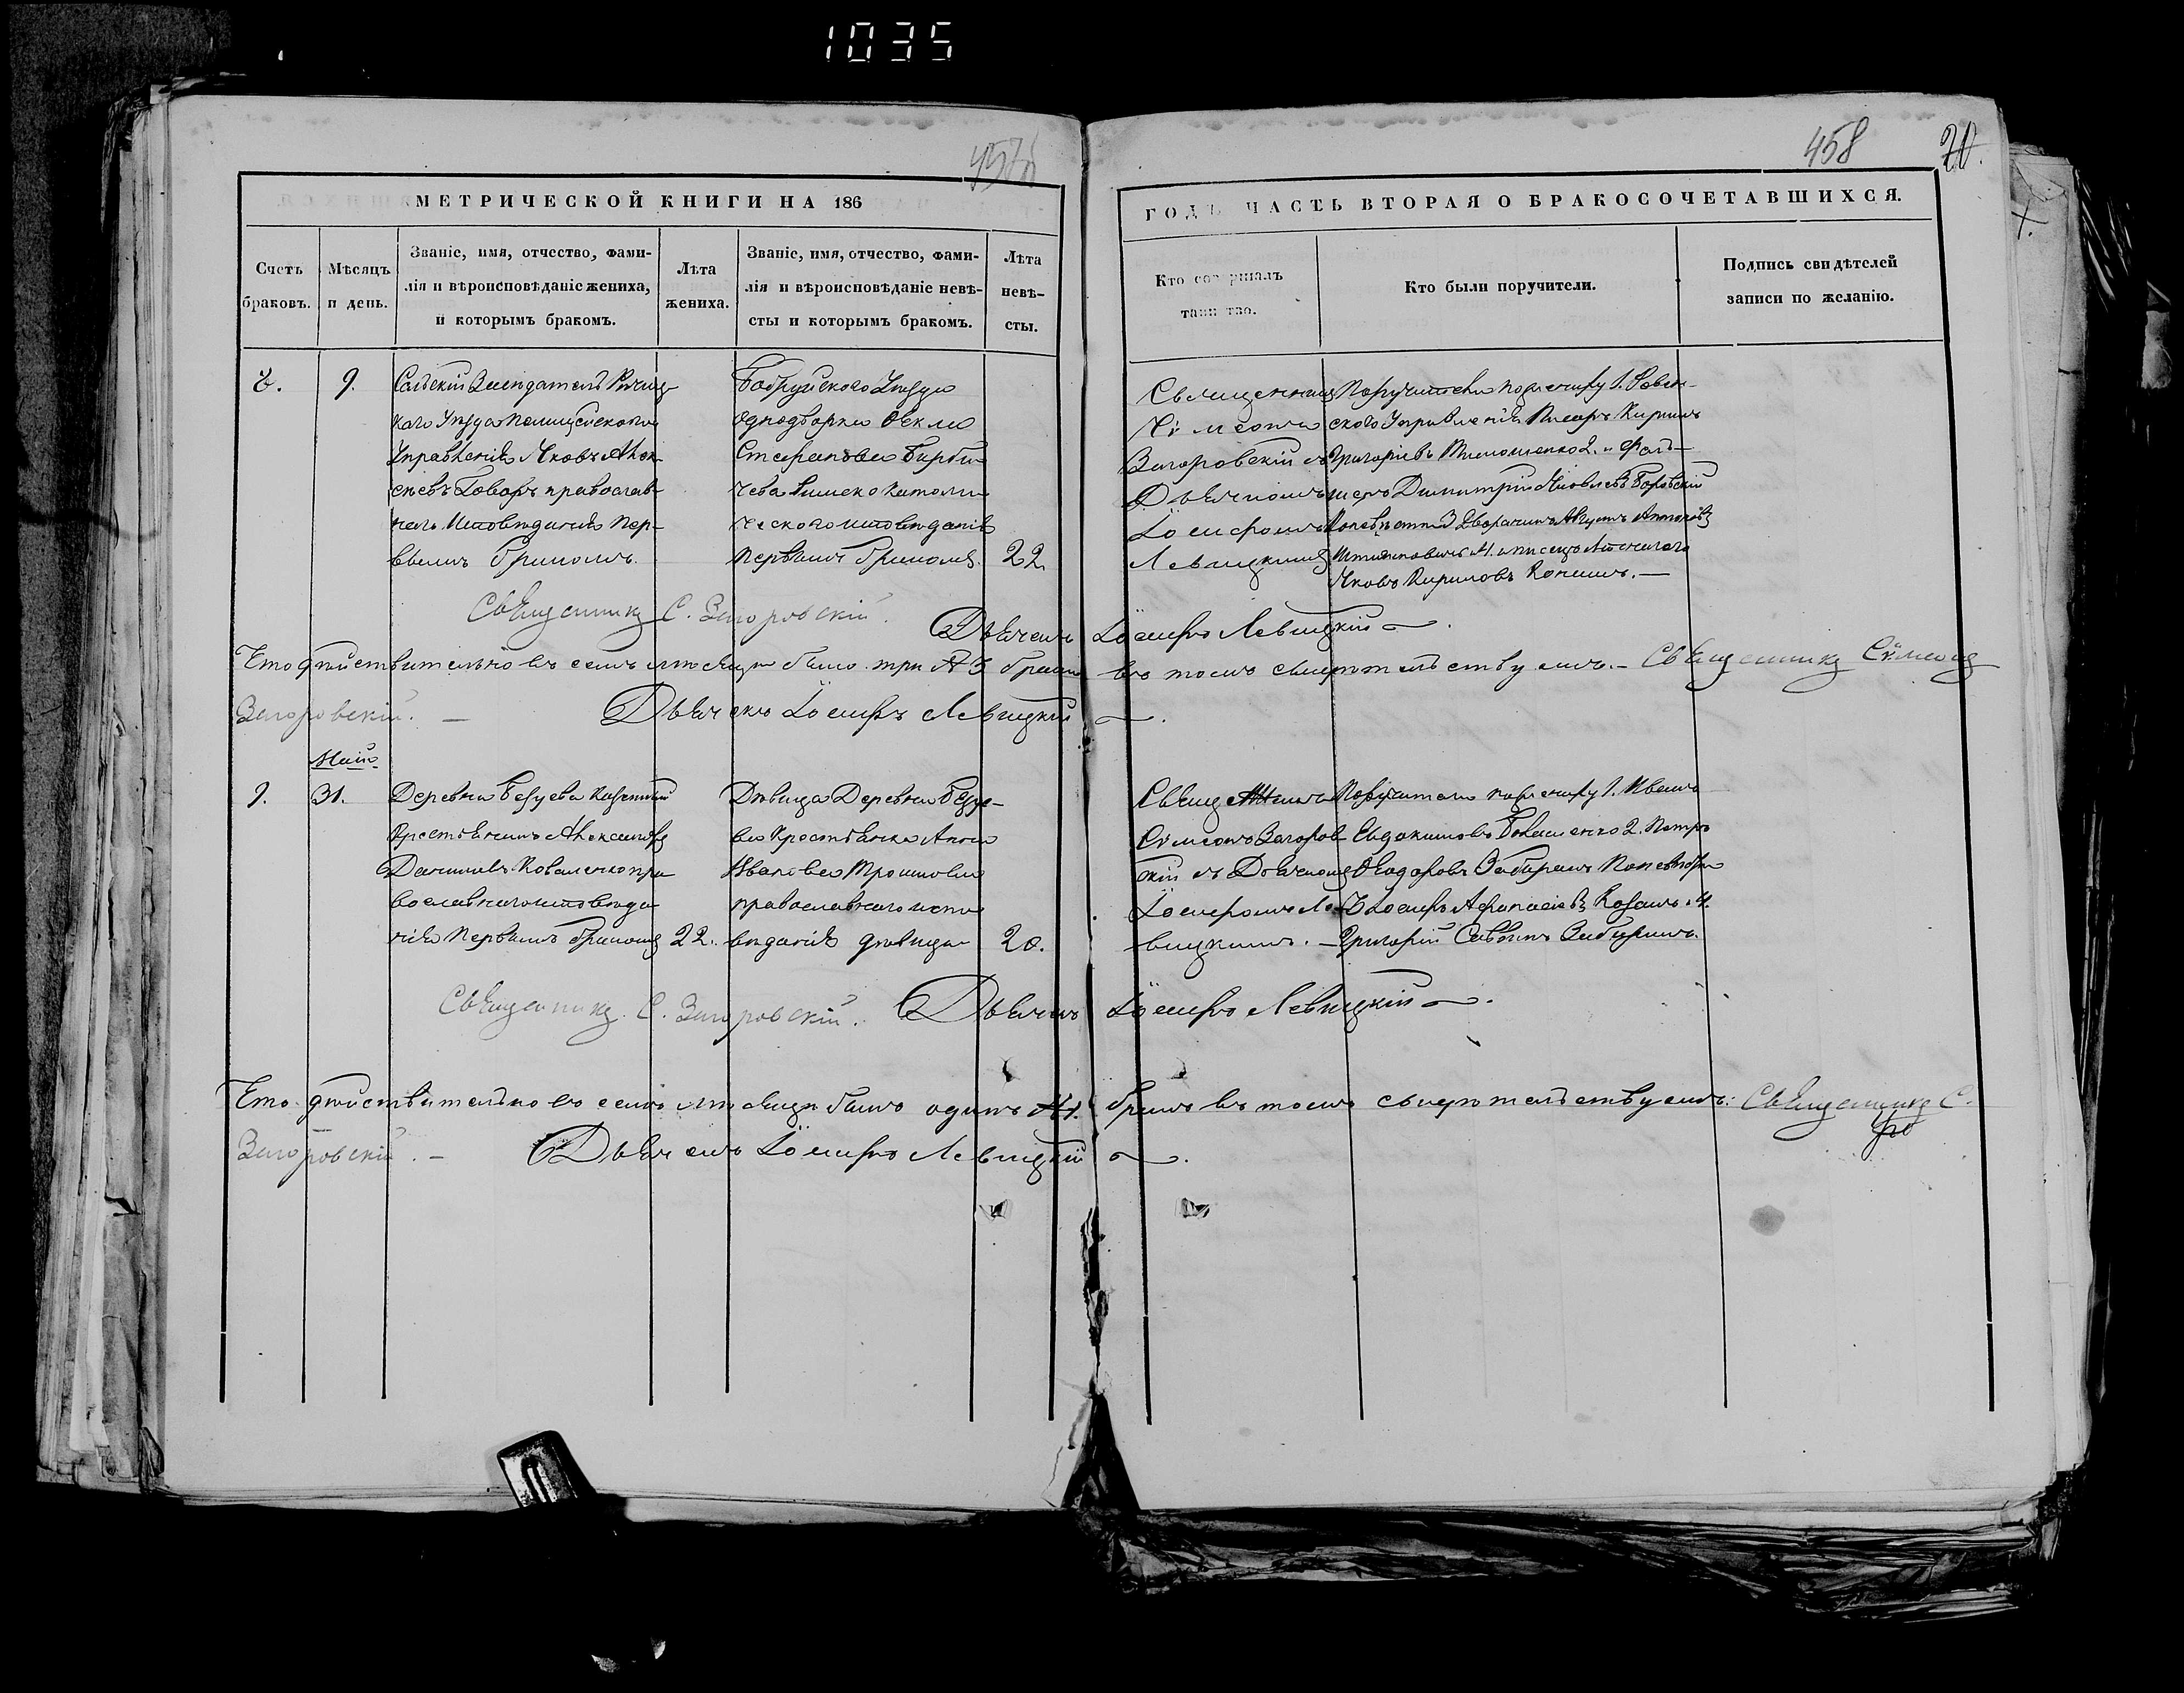 1035
458
20.
МЕТРИЧЕСКОЙ КНИГИ НА 186
ГОДЪ ЧАСТЬ ВТОРАЯ О БРАКОСОЧЕТАВШИХСЯ.
Счетъ браковъ.
Мѣсяцъ и день.
Званіе, имя, отчество, фами-
лія и вѣроисповѣданіе жениха,
и которымъ бракомъ.
Лѣта жениха.
Званіе, имя, отчество, фами-
лія и вѣроисповѣданіе невѣ-
сты и которымъ бракомъ.
Лѣта невѣ-
сты.
Кто совершалъ
таинство.
Кто были поручители.
Подпись свидѣтелей
записи по желанію.
8.
9.
Сельскій Засѣдатель Речиц-
каго Уѣзда Полицейскаго
Управленія Яковъ Алек-
сѣевъ Говоръ православ-
наго исповѣданія пер-
вымъ бракомъ.
Бобруйскаго Уѣзда
однодворка Ѳекла
Стефанова
Римско католи
ческого исповѣданія
первымъ бракомъ.
22.
Священникъ
Сѵмеонъ
Загоровскій съ
Дьячкомъ
Іосифомъ
Левицкимъ
Поручители по жениху 1.
скаго Управленія Писарь Кирилъ
Григоріевъ Тимошенко 2. и Фельд-
шеръ Димитрій Яковлевъ Боровскій
По невѣстѣ 3 Дворянинъ Августъ Антоновъ
4. и писецъ
Яковъ Кириловъ
Священникъ С. Загоровскій.
Дьячекъ Іосифъ Левицкій
Что дѣйствительно въ семъ мѣсяцѣ было три № 3 брака въ томъ свидѣтельствуемъ. — Священникъ Сѵмеонъ
Загоровскій. — Дьячекъ Іосифъ Левицкій.
Май
9.
31.
Деревни Безуева Казенный
Крестьянинъ Александръ
Даниловъ Коваленко пра
вославнаго исповѣда
нія первымъ бракомъ
22.
Дѣвица Деревни Безуе-
ва Крестьянка Анна
Иванова Трошкова
православнаго испо
вѣданія дѣвица
20.
Священникъ
Сѵмеонъ Загоров
скій съ Дьячкомъ
Іосифомъ Ле-
вицкимъ. —
Поручители по жениху 1. Иванъ
Евдокимовъ Коваленко 2. Петръ
Ѳеодоровъ По невѣстѣ
3 Іосифъ Афанасіевъ Козакъ 4.
Григорій Саввинъ
Священникъ С. Загоровскій.
Дьячекъ Іосифъ Левицкій
Что дѣйствительно въ семъ мѣсяцѣ былъ одинъ № 1. бракъ въ томъ свидѣтельствуемъ: Священникъ С.
Загоровскій. — Дьячекъ Іосифъ Левицкій.